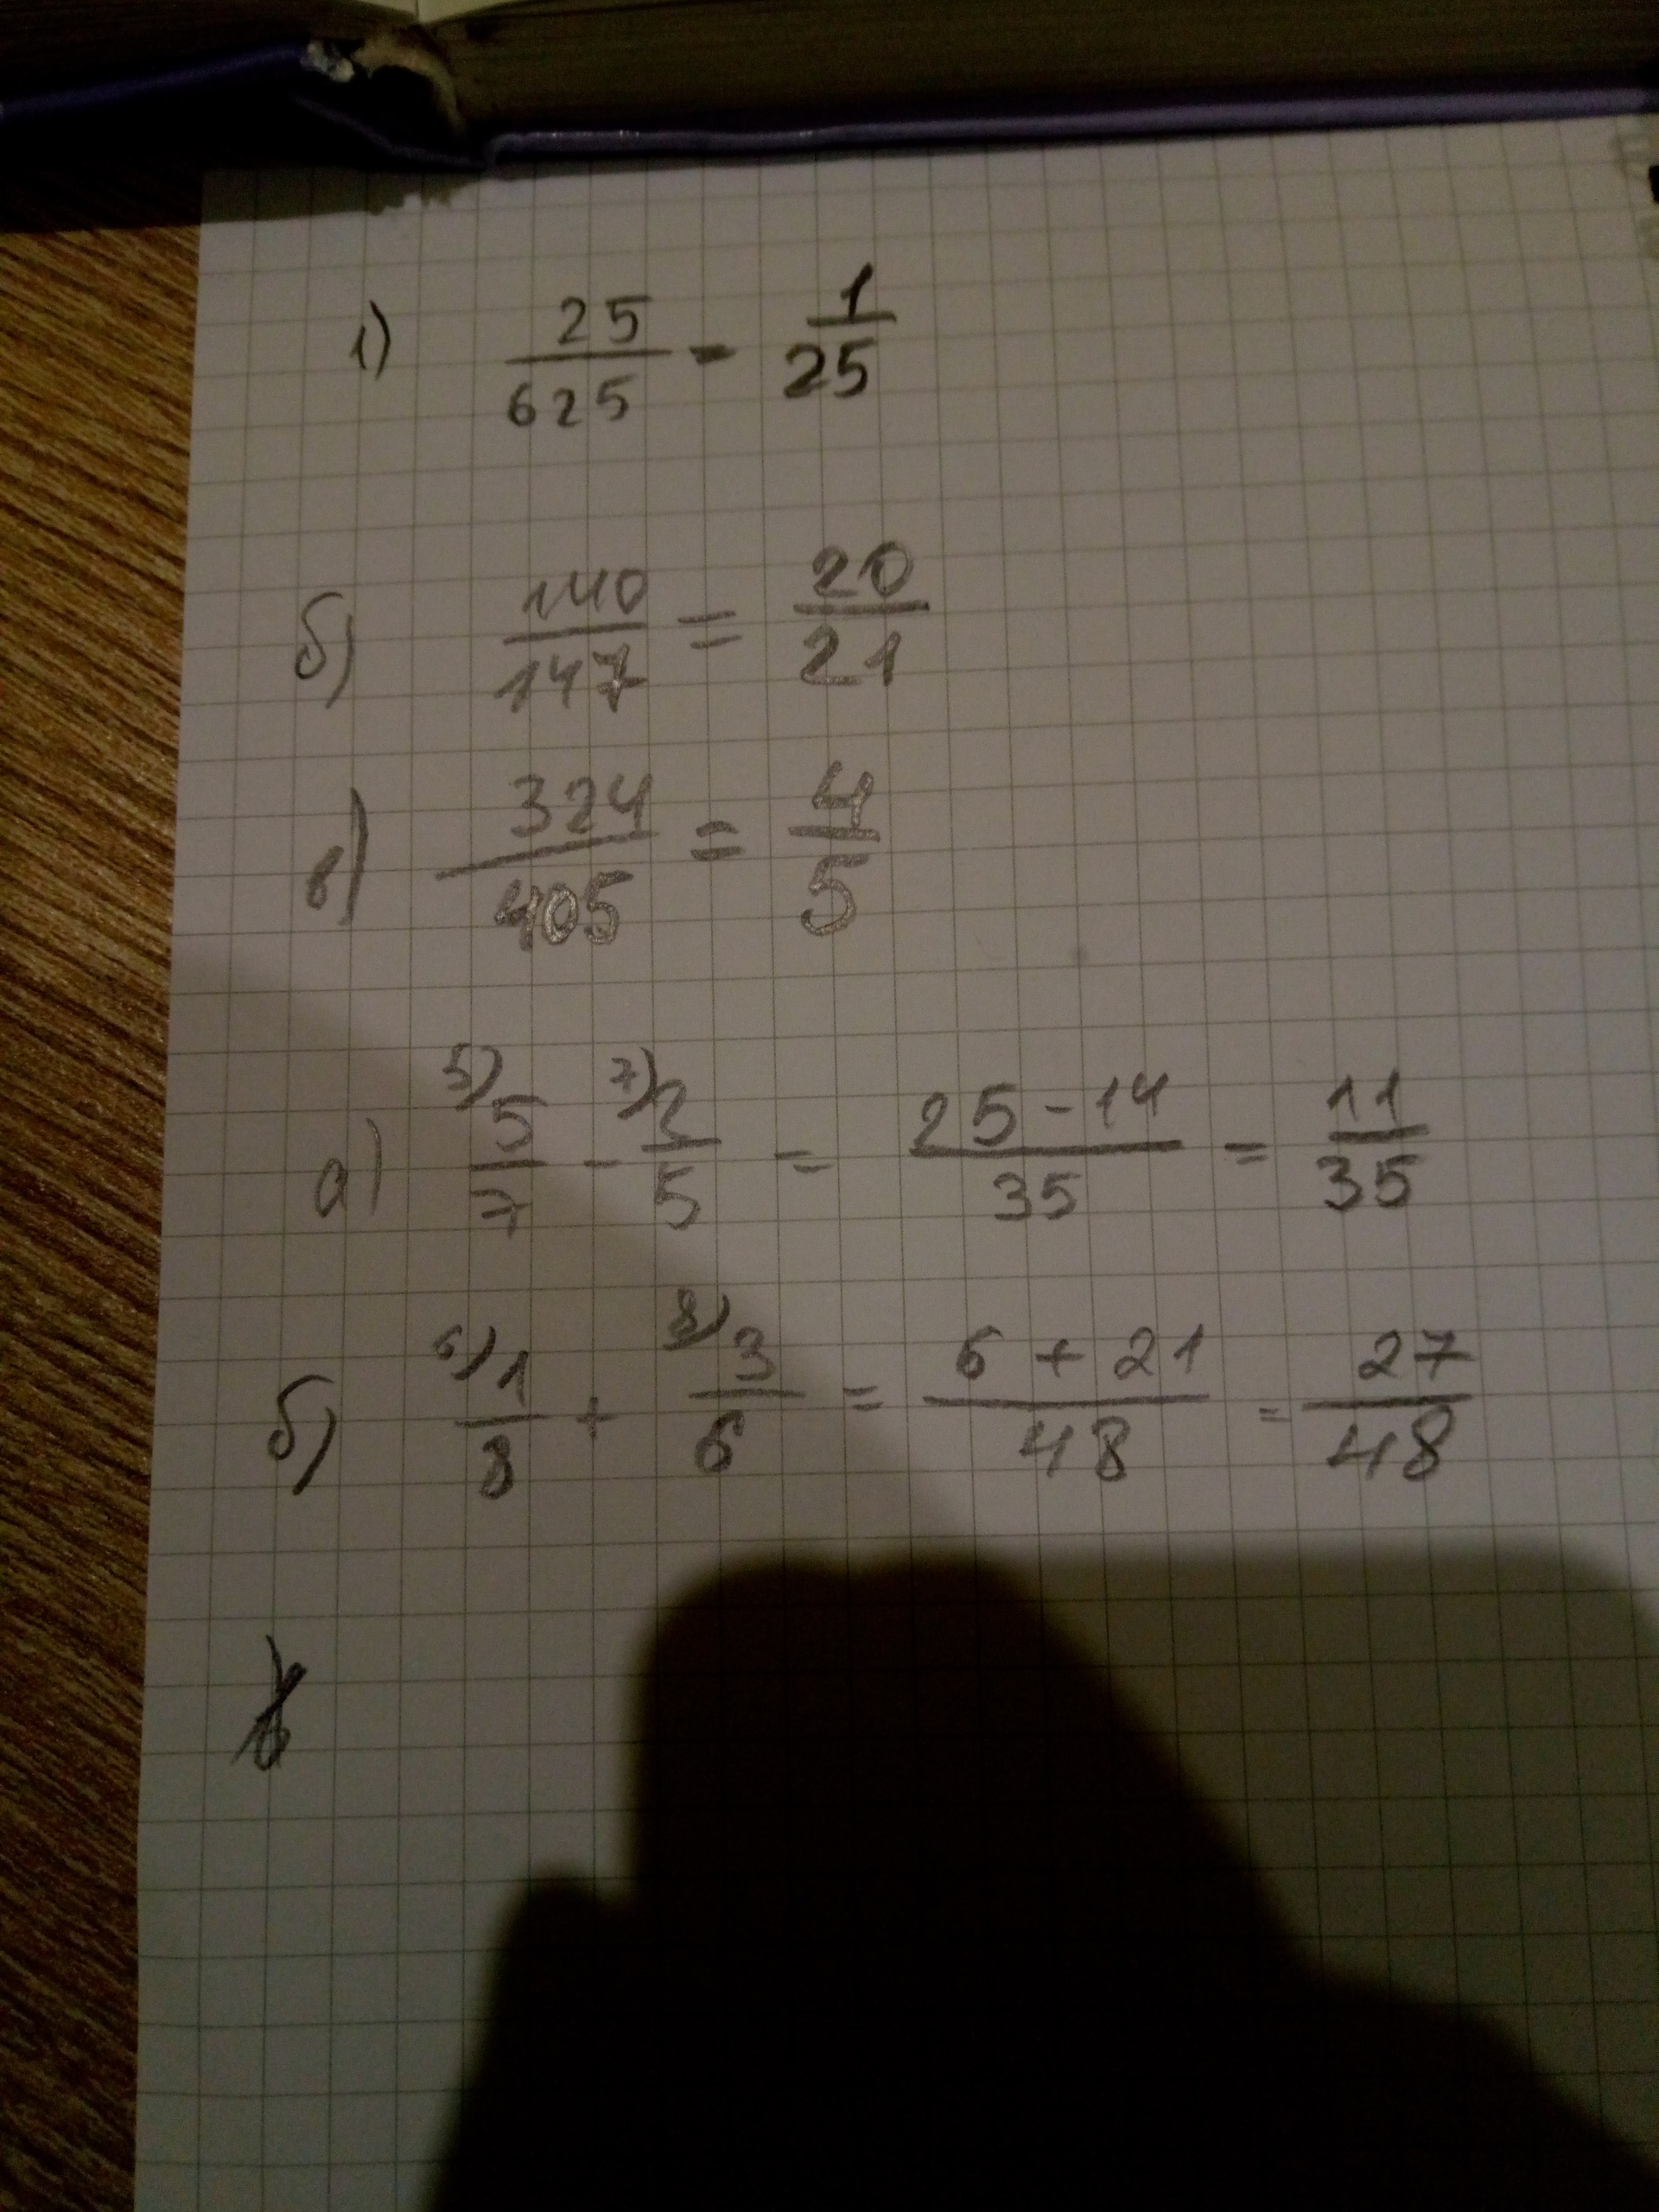 1) 25/625 = 1/25
б) 140/147 = 20/21
в) 324/405 = 4/5
а) 5) 5/7 - 7) 2/5 = 25-14/35 = 11/35
б) 6) 1/8 + 8) 3/6 = 6+21/48 = 27/48